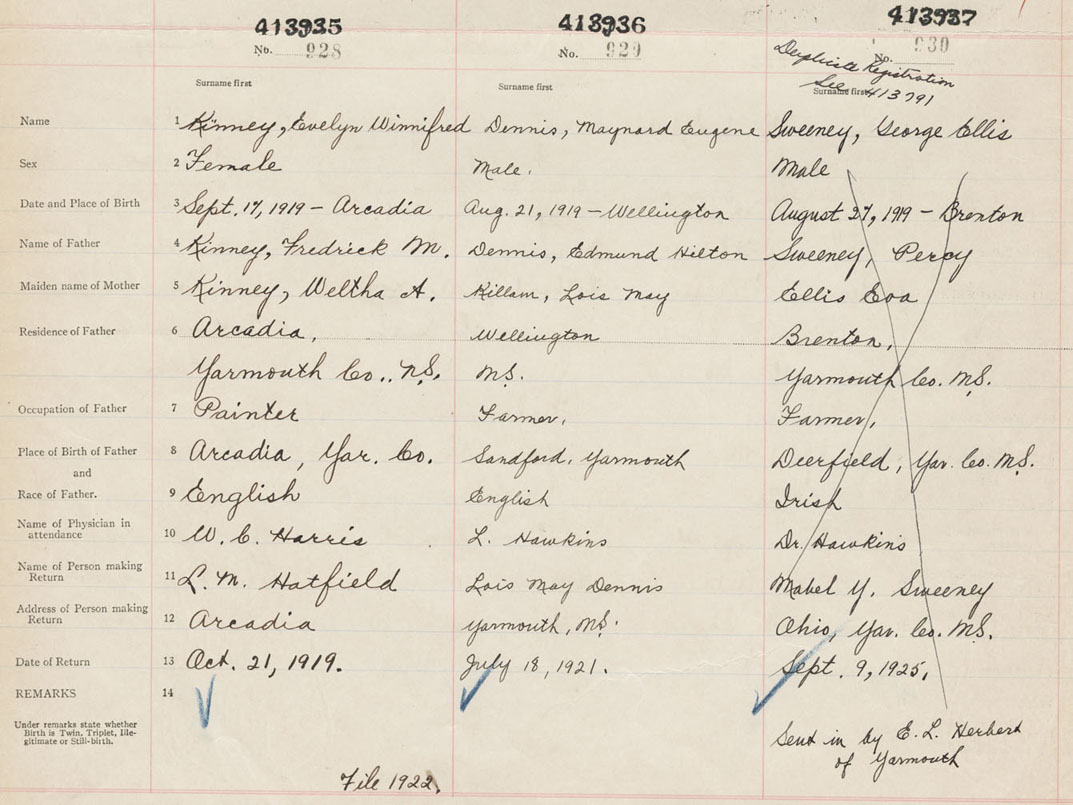 413935 413936 413937
No. 928 No. 929 No. 930
Duplicate Registration
See 413791
Surname first Surname first Surname first
Name 1 Kinney, Evelyn Winnifred Dennis, Maynard Eugene Sweeney, George Ellis
Sex 2 Female Male. Male
Date and Place of Birth 3 Sept. 17, 1919 - Arcadia Aug. 21, 1919 - Wellington August 27, 1919 - Brenton
Name of Father 4 Kinney, Fredrick M. Dennis, Edmund Hilton Sweeney, Percy
Maiden name of Mother 5 Kinney, Weltha A. Killam, Lois May Ellis Eva
Residence of Father 6 Arcadia, Wellington Brenton,
Yarmouth Co., N.S. N.S. Yarmouth Co. N.S.
Occupation of Father 7 Painter Farmer, Farmer,
Place of Birth of Father 8 Arcadia, Yar. Co. Sandford, Yarmouth Deerfield, Yar. Co. N.S.
and
Race of Father. 9 English English Irish
Name of Physician in
attendance 10 W. C. Harris L. Hawkins Dr. Hawkins
Name of Person making
Return 11 L. M. Hatfield Lois May Dennis Mabel Y. Sweeney
Address of Person making
Return 12 Arcadia Yarmouth, N.S. Ohio, Yar. Co. N.S.
Date of Return 13 Oct. 21, 1919. July 18, 1921. Sept. 9, 1925.
REMARKS 14
Under remarks state whether
Birth is Twin, Triplet, Ille-
gitimate or Still-birth.
Sent in by E. L. Herbert
of Yarmouth
File 1922.